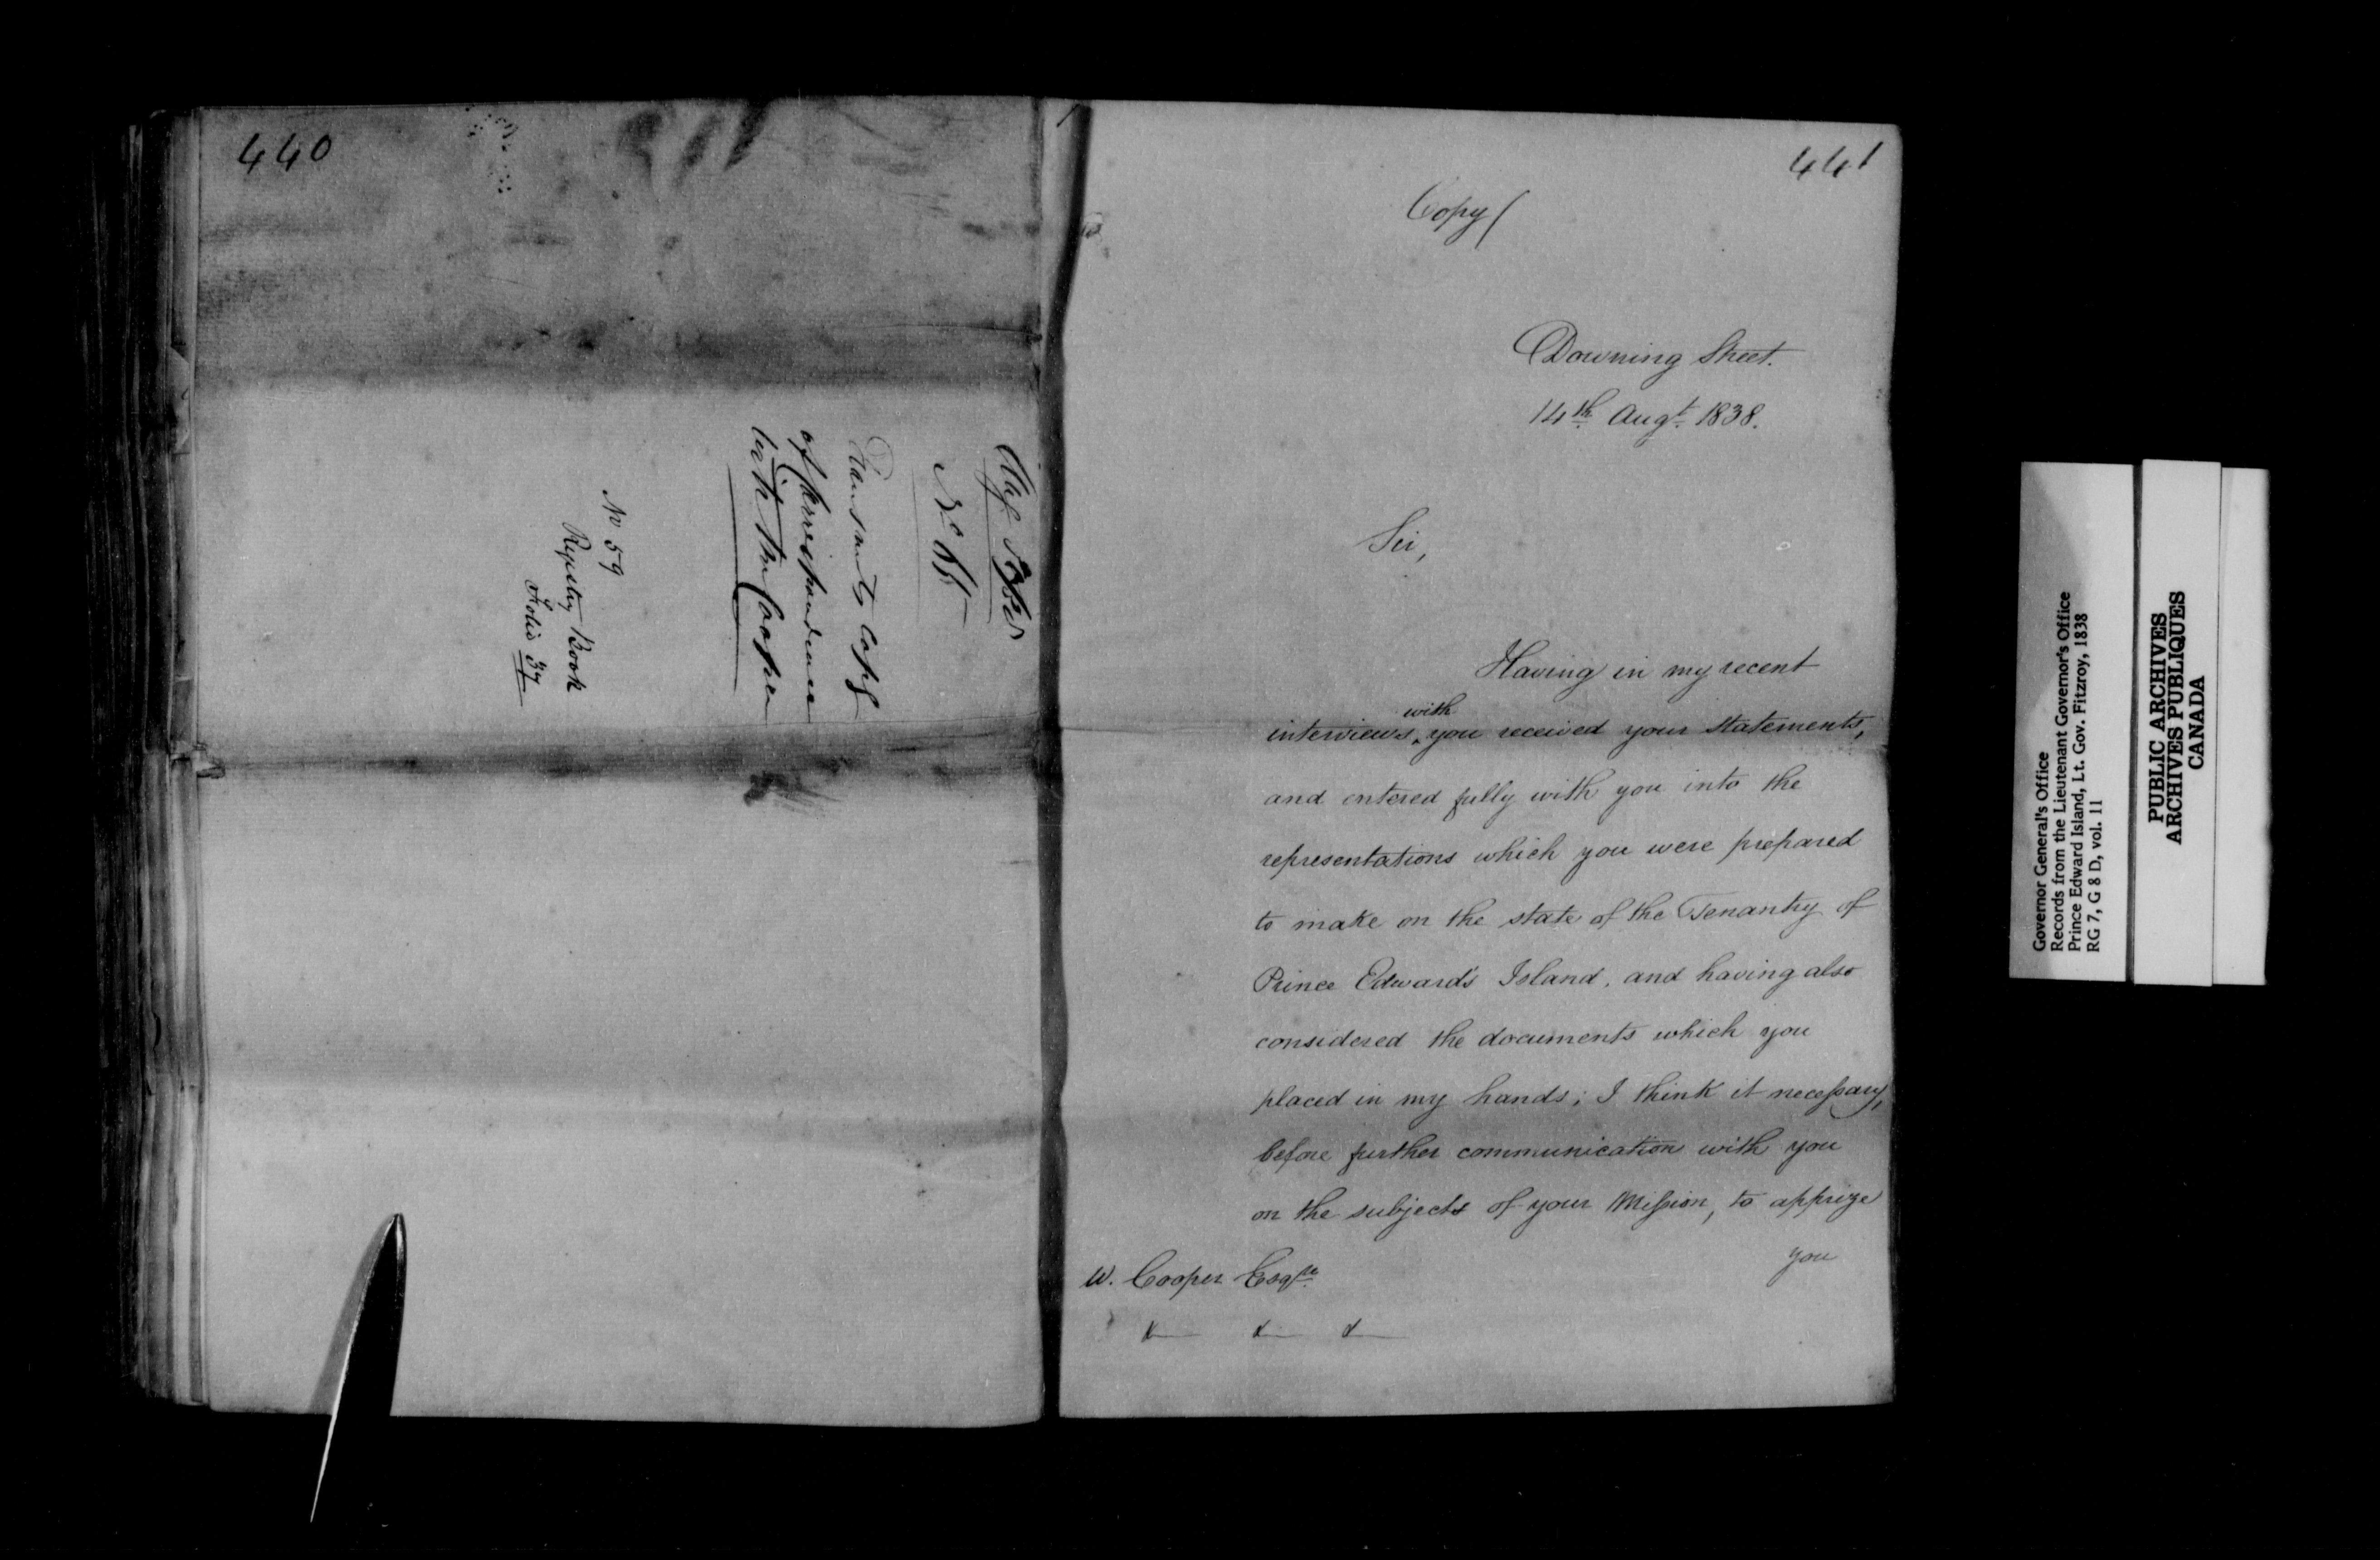 440
Transmits Copy
of Correspondence
with Mr Cooper
No 59
Registry Book
Folio 37
441
Copy
Downing Street.
14th Augt. 1838.
Sir,
Having in my recent
interviews with you received your statements,
and entered fully with you into the
representations which you were prepared
to make on the state of the Tenantry of
Prince Edward's Island, and having also
considered the documents which you
placed in my hands; I think it necessary,
before further communication with you
on the subjects of your Mission, to apprize
you
W. Cooper Esqre.
Governor General's Office
Records from the Lieutenant Governor's Office
Prince Edward Island, Lt. Gov. Fitzroy, 1838
RG 7, G 8 D, vol. 11
PUBLIC ARCHIVES
ARCHIVES PUBLIQUES
CANADA